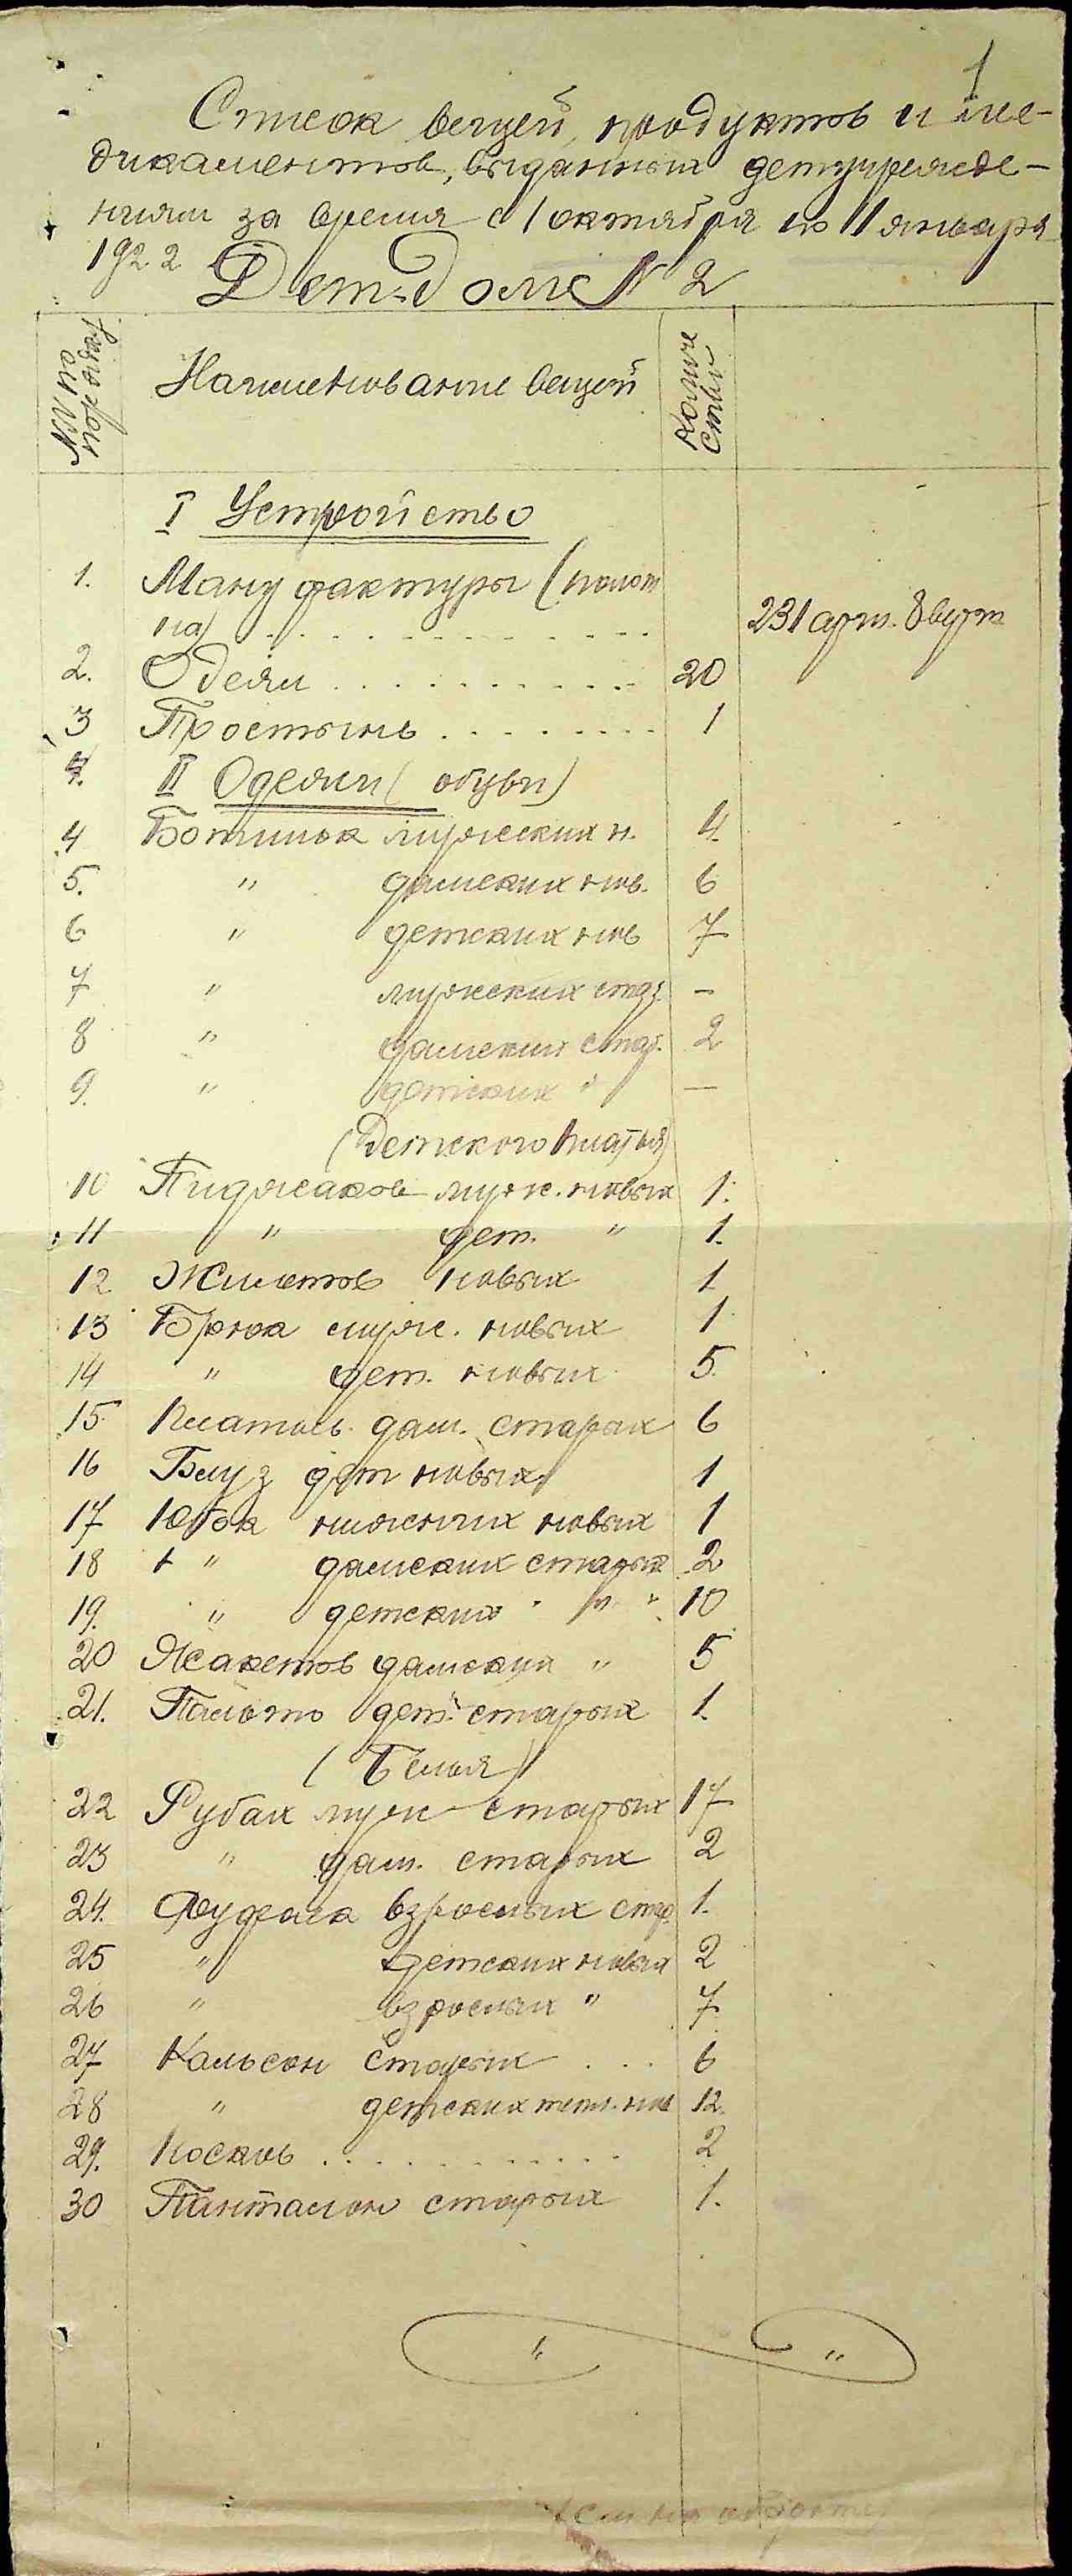 1
Список вещей, продуктов и ме-
дикаментов, выданных детучрежде-
ниям за время с 1 октября по 1 января
1922 Дет-доме N 2
NN по порядку
Наименование вещей
Количе ством
I Устройство
1. Мануфактуры (полот
на) . . . . . . . . . . . 231 арш. 8 верш
2. Одеял . . . . . . . . . . 20
3 Простынь . . . . . . . . 1
II Одеяни (обуви)
4 Ботинок мужских н. 4.
5. " дамских нов. 6
6 " детских нов 7
7 " мужских стар. -
8 " дамских стар. 2
9. " детских " —
(Детского платья)
10 Пиджаков муж. новых 1.
11 " дет. " 1.
12 Жилетов новых 1
13 Брюк муж. новых 1
14 " дет. новых 5.
15 Платьев. дам. старых 6
16 Блуз дет новых 1
17 Юбок нижних новых 1
18 " дамских старых 2
19. " детских " " 10
20 Жакетов дамских " 5
21. Пальто дет. старых 1.
(Белья)
22 Рубах муж старых 17
23 " дам. старых 2
24. Фуфаек взрослых стар. 1.
25 " детских новых 2
26 " взрослых " 7
27 Кальсон старых . . . 6
28 " детских тепл. нов 12.
29. Носков . . . . . . . . . 2
30 Панталон старых 1.
" "
см на обороте